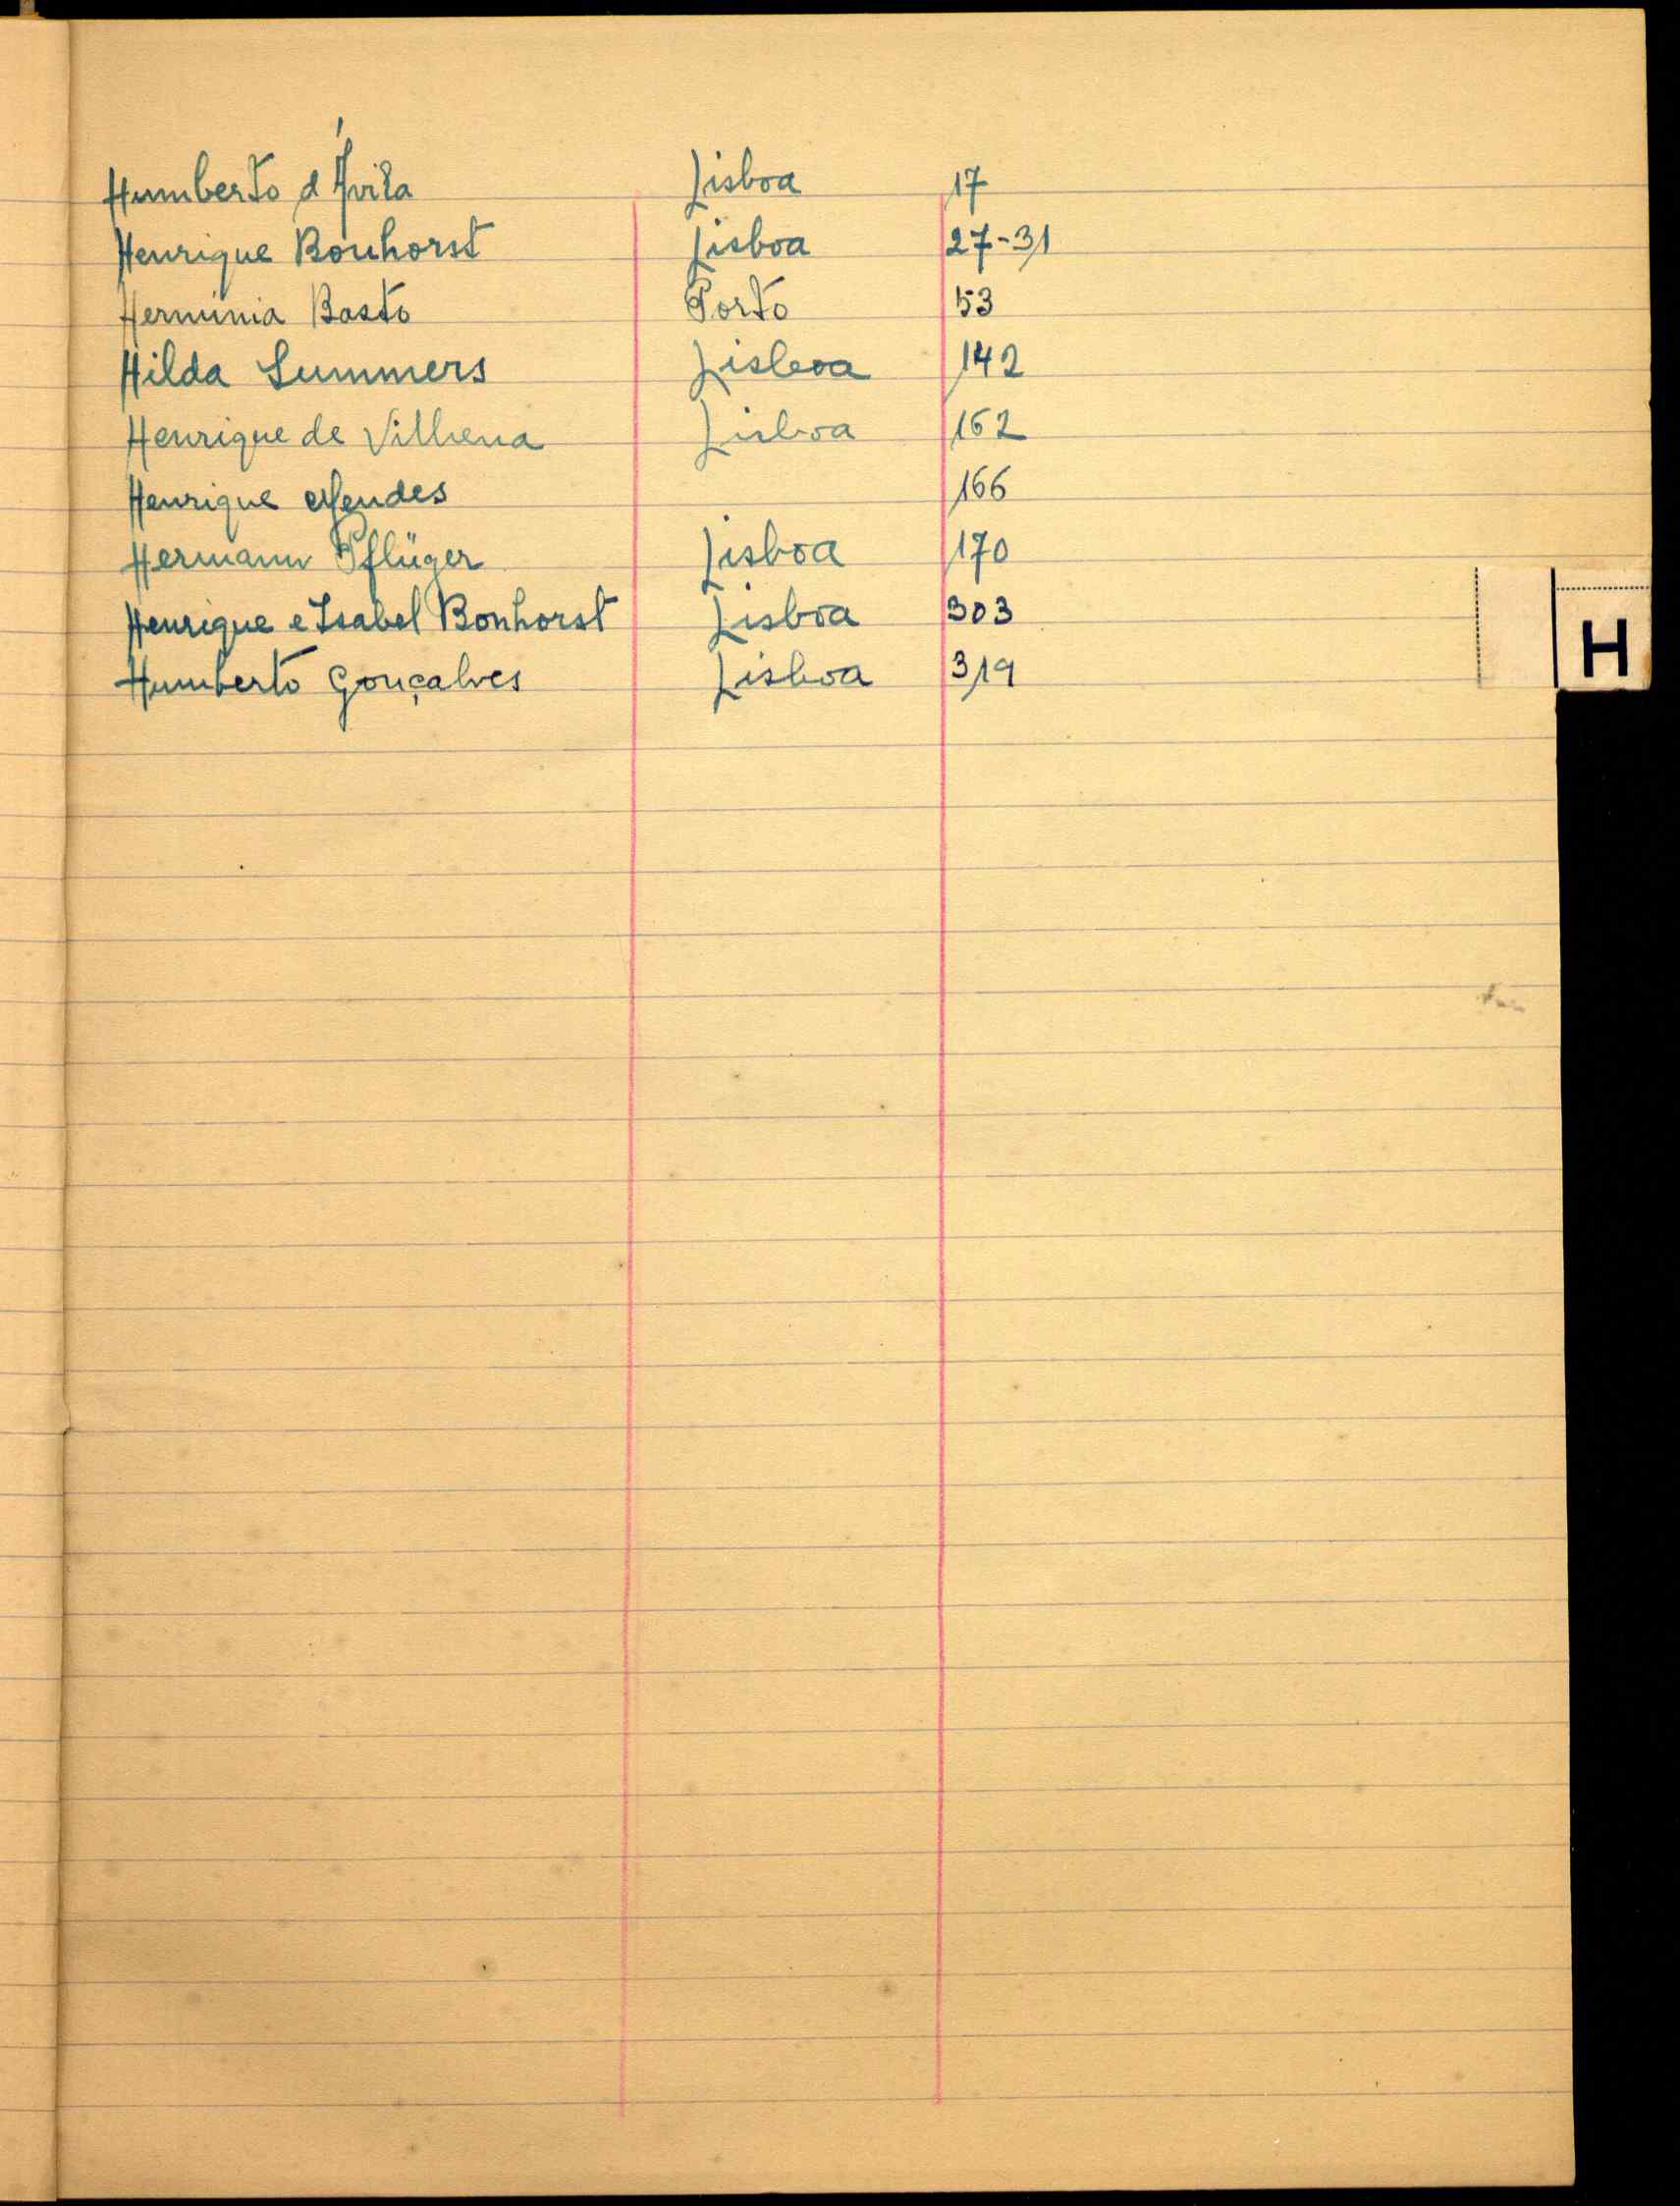 Humberto d'Ávila Lisboa 17
Henrique Bonhorst Lisboa 27-31
Hermínia Basto Porto 53
Hilda Summers Lisboa 142
Henrique de Vilhena Lisboa 162
Henrique Mendes 166
Hermann Pflüger Lisboa 170
Henrique e Isabel Bonhorst Lisboa 303
H
Humberto Gonçalves Lisboa 319